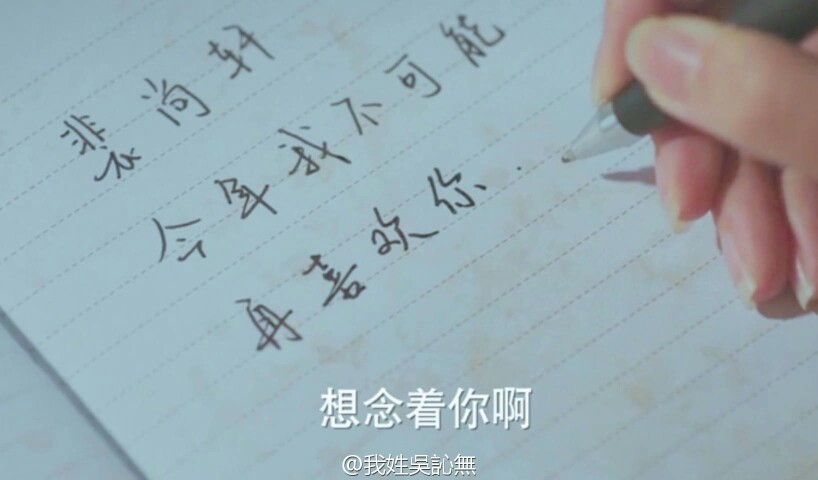 裴尚轩
今年我不可能
再喜欢你..
想念着你啊
@我姓吳訫無